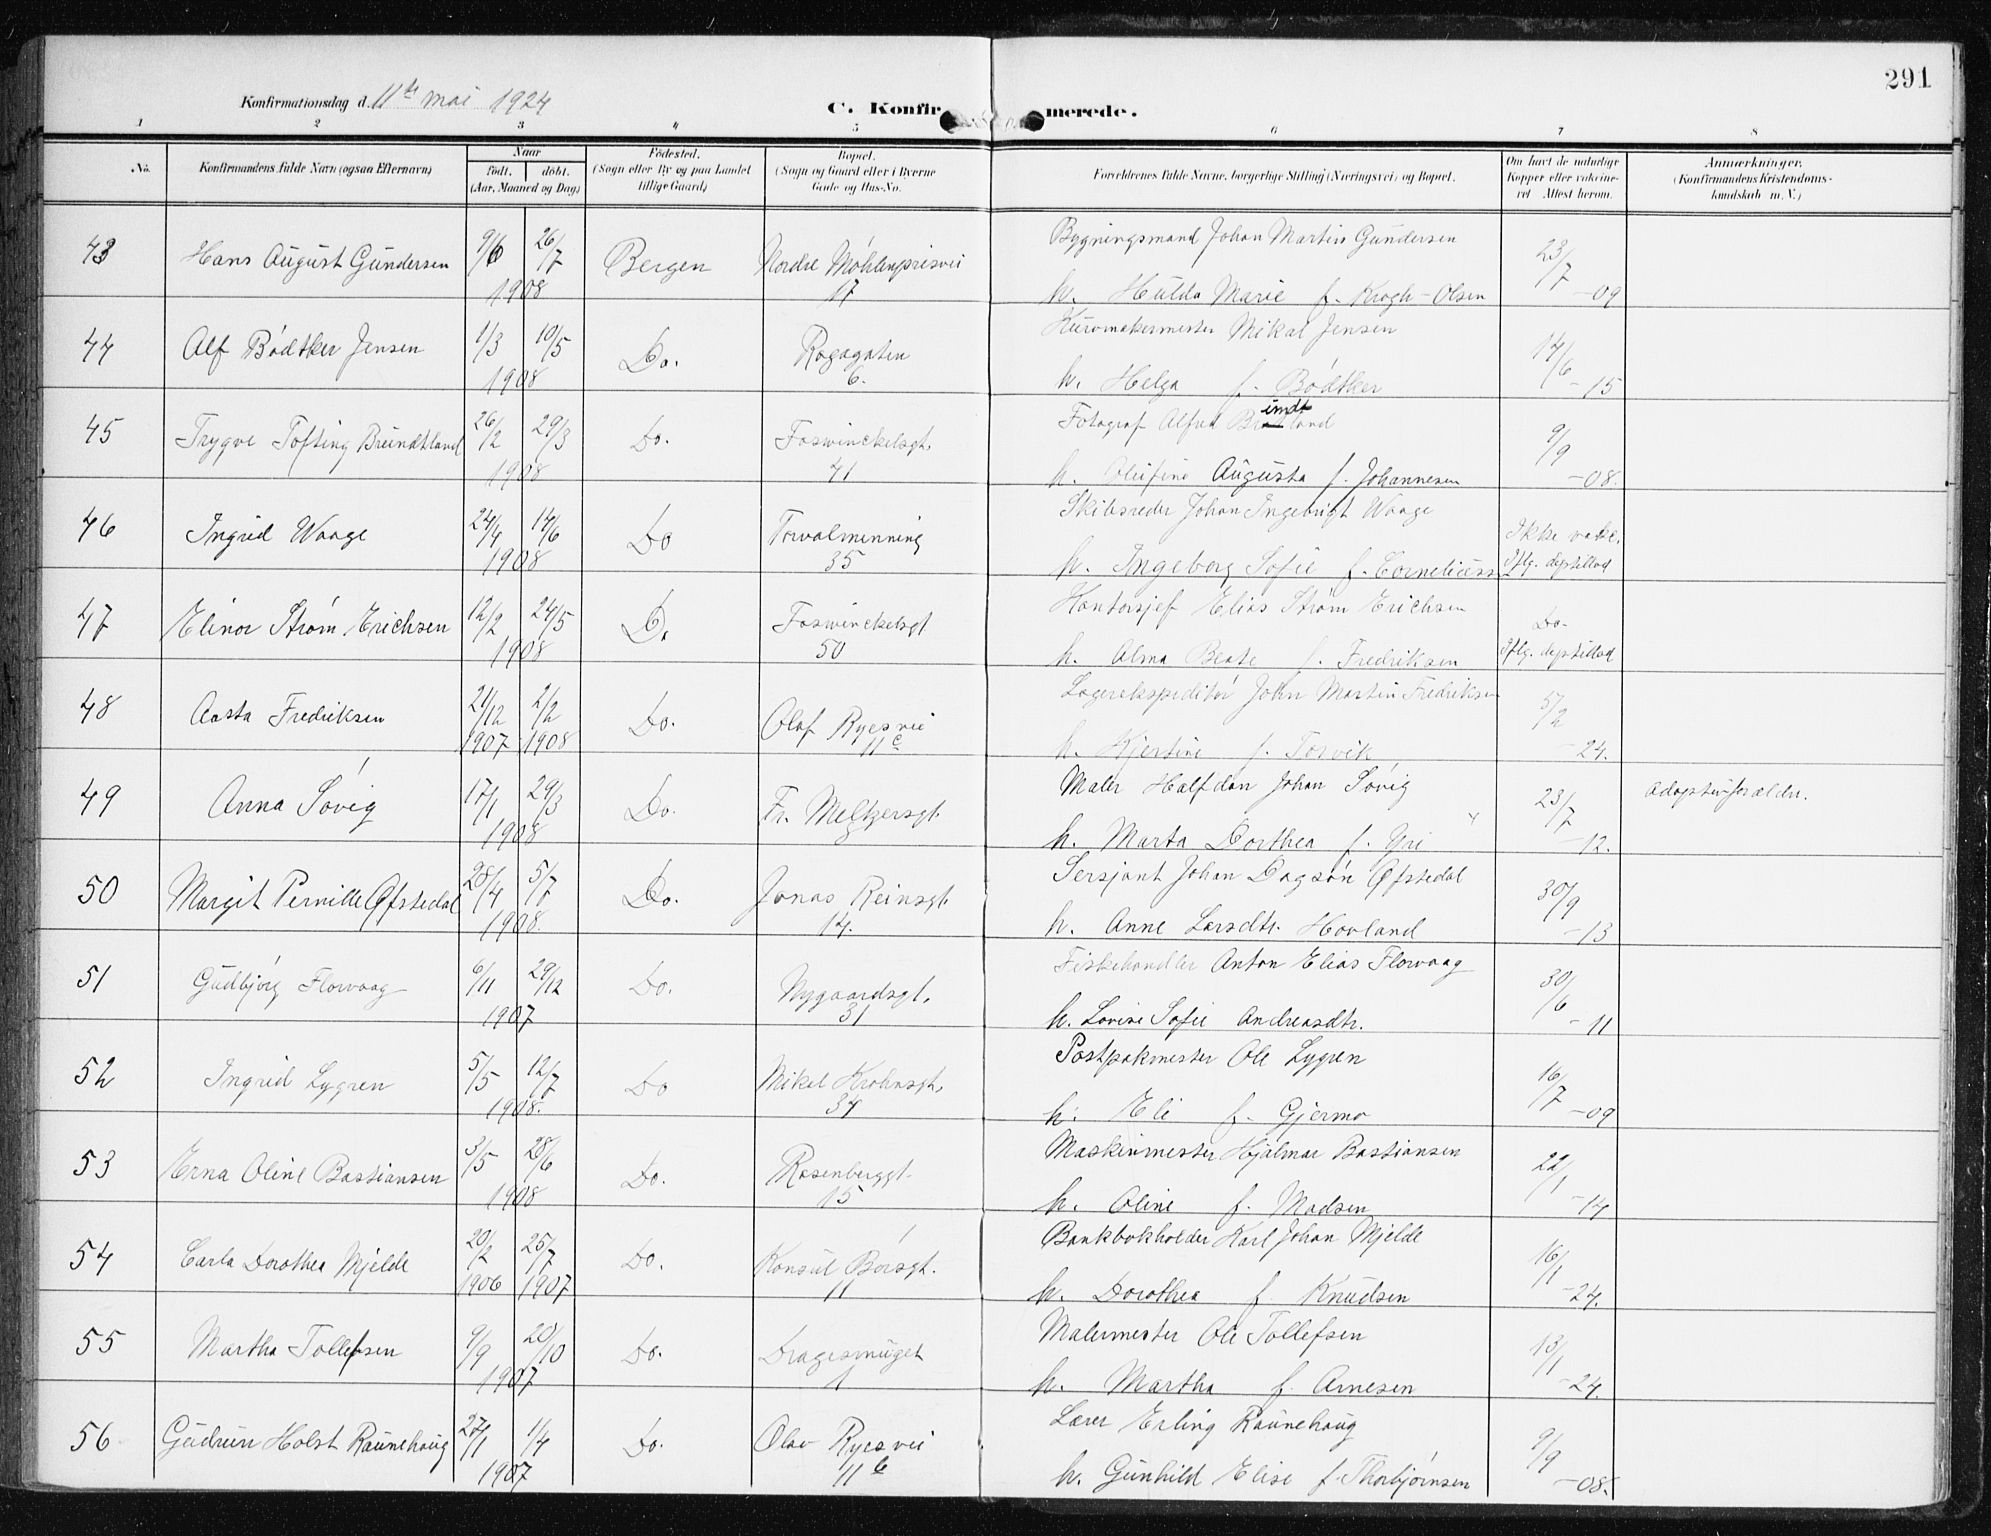 291
Konfirmationsdag d. 11te mai 1924
C. Konfirmerede.
1 2 3 4 5 6 7 8
No. Konfirmandens fulde Navn (ogsaa Efternavn) Naar født. døbt. (Aar, Maaned og Dag) Fødested. (Sogn eller By og paa Landet tillige Gaard) Bopæl. (Sogn og Gaard eller i Byerne Gade og Hus-No. Forældrenes fulde Navne, borgerlige Stilling (Næringsvei) og Bopæl. Om havt de naturlige Kopper eller vaccineret Attest herom. Anmærkninger. (Konfirmandens Kristendomskundskab m. V.)
43 Hans August Gundersen 9/6 26/7 Bergen Nordre Møhlenprisvei Bygningsmand Johan Martin Gundersen 23/7
1908 17 h. Hulda Marie f. Krogh-Olsen -09
44 Alf Bødtker Jensen 1/3 10/5 Do. Rogagaten Kurvmakermester Mikal Jensen 14/6
1908 6. h. Helga f. Bødtker -15
45 Trygve Tofting Brundtland 26/2 29/3 Do. Foswinckelsgt. Fotograf Alfred undt 9/9
1908 41 h. Olufine Augusta f. Johannesen -08.
46 Ingrid Waage 24/4 14/6 Do Torvalmenning Skibsreder Johan Ingebrigt Waage Ikke vakc.
1908 35 h. Ingeborg Sofie f. Corneliuss Iflg. deptillad
47 Elinor Strøm Erichsen 12/2 24/5 Do Foswinckelsgt Kontorsjef Elias Strøm Erichsen Do-
1908 50 h. Alma Beate f. Fredriksen Iflg. deptillad
48 Aasta Fredriksen 21/12 2/2 Do. Olaf Ryesvei Lagerekspeditør John Martin Fredriksen 5/2
1907 1908 11c h. Kjerstine f. Torvik -24.
49 Anna Søvig 17/1 29/3 Do. Fr. Meltzersgt. Maler Halfdan Johan Søvig 23/7 Adoptivforældr.
1908 h. Marta Dorthea f. Yri -12.
50 Margit Pernille Øfstedal 28/4 5/7 Do. Jonas Reinsgt. Sersjant Johan Dagsøn Øfstedal 30/9
1908. 14. h. Anne Larsdtr. Hovland -13
51 Gudbjørg Florvaag 6/11 29/12 Do. Nygaardsgt. Fiskehandler Anton Elias Florvaag 30/6
1907 31 h. Lovise Sofie Andreasdtr. -11
52 Ingrid Lygren 5/5 12/7 Do Mikal Krohnsgt. Postpakmester Ole Lygren 16/7
1908. 34 h. Eli f. Gjermo -09
53 Erna Oline Bastiansen 3/5 28/6 Do. Rosenberggt. Maskinmester Hjalmar Bastiansen 22/1
1908 15 h. Oline f. Madsen -14
54 Carla Dorothea Mjelde 20/2 25/7 Do. Konsul Børsgt. Bankbokholder Karl Johan Mjelde 16/1
1906 1907 11 h. Dorothea f Knudsen -24.
55 Martha Tollefsen 9/9 20/10 Do. Dragesmuget Malermester Ole Tollefsen 13/1
1907 1 h. Martha f. Arnesen -24.
56 Gudrun Holst Raunehaug 27/1 1/4 Do. Olav Ryesvei Lærer Erling Raunehaug 9/9
1907 11b h. Gunhild Elise f. Thorbjørnsen -08.